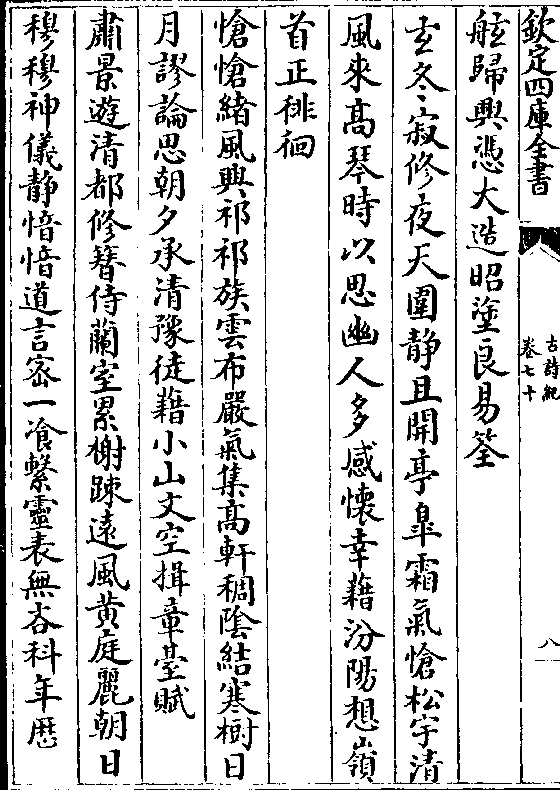 欽定四庫全書
古詩紀
卷七十
八
舷歸興憑大造昭塗良易筌
玄冬冬寂修夜天圍靜且開亭臯霜氣愴松宇清
風來高琴時以思幽人多感懷幸藉汾陽想嶺
首正徘徊
愴愴緒風興祁祁族雲布嚴氣集高軒稠陰結寒樹日
月謬論思朝夕承清豫徒藉小山文空揖章臺賦
肅景遊清都修簪侍蘭室累榭踈遠風黃庭麗朝日
穆穆神儀静愔愔道言宻一飡繫靈表無吝科年厯